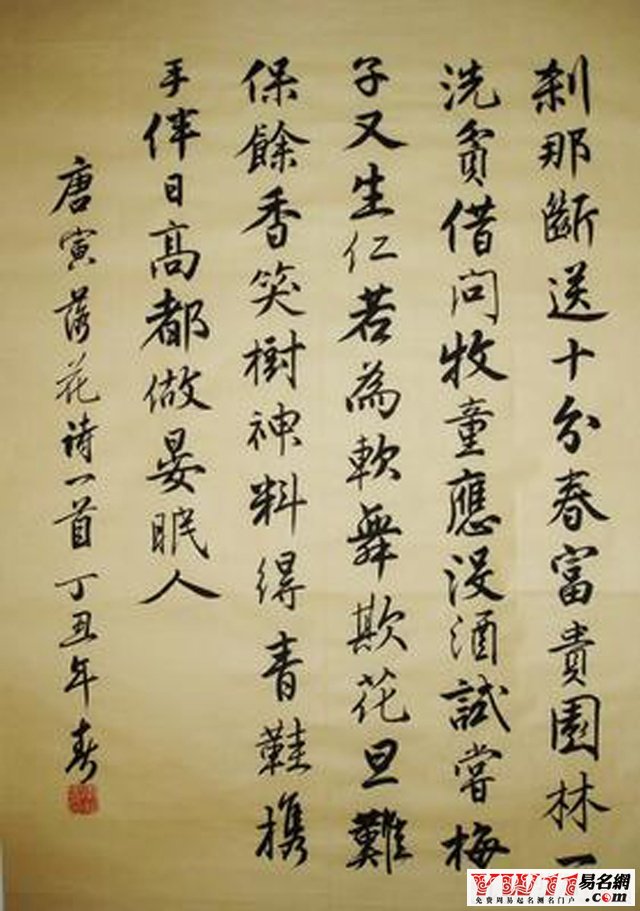 刹那斷送十分春富貴園林一
洗貧借問牧童應没酒試嘗梅
子又生仁若為軟舞欺花旦難
保餘香笑樹神料得青鞋携
手伴日高都做晏眠人
唐寅落花诗一首丁丑年春
YW11易名網.com
免费周易起名测名门户